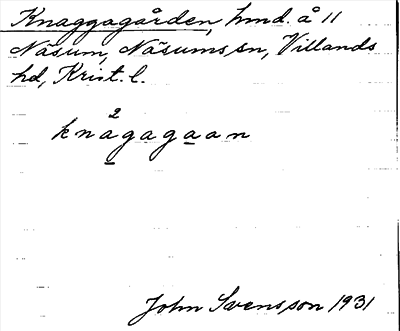 Knaggagården, hmd. å 11
Näsum, Näsums sn, Villands
hd, Krist. l.
2
knagagaan
John Svensson 1931